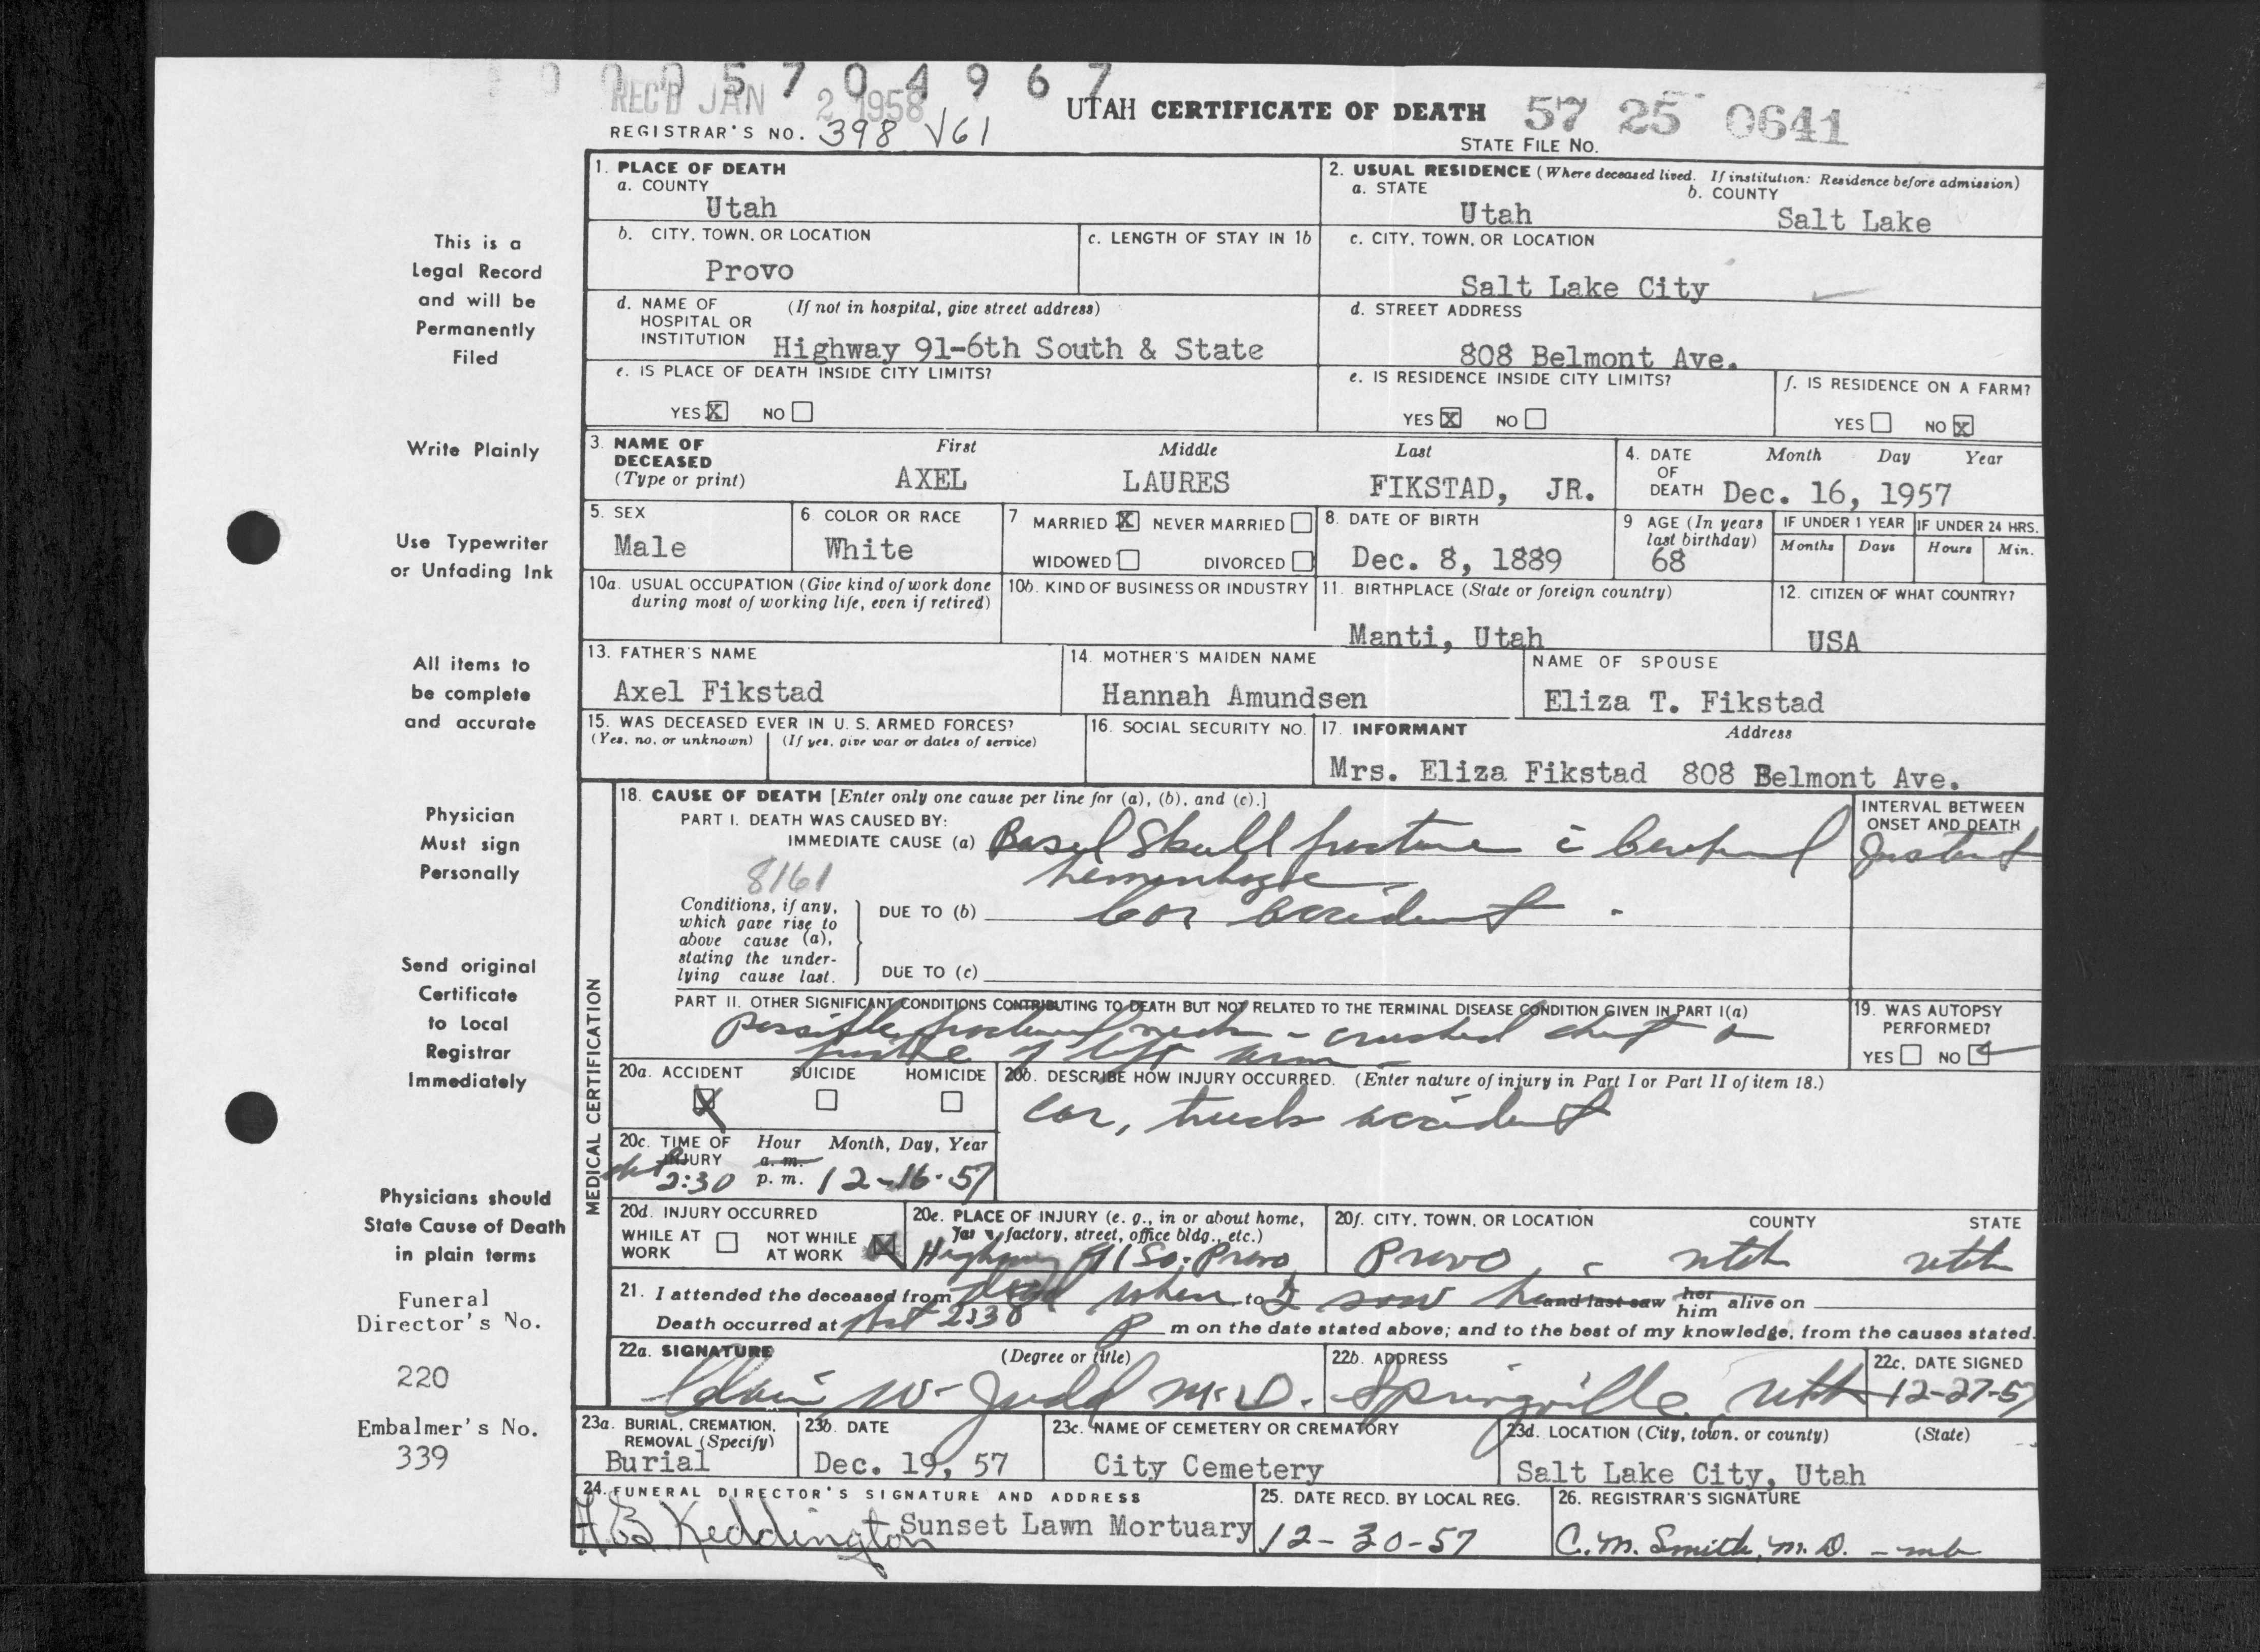 0 0 0 5 7 0 4 9 6 7
REC'D JAN 2 1958
UTAH CERTIFICATE OF DEATH 57 25 0641
REGISTRAR'S NO. 398 V61
STATE FILE NO.
1. PLACE OF DEATH
a. COUNTY
Utah
2. USUAL RESIDENCE (Where deceased lived. If institution: Residence before admission)
a. STATE b. COUNTY
Utah Salt Lake
b. CITY, TOWN, OR LOCATION
Provo
c. LENGTH OF STAY IN 1b
c. CITY, TOWN, OR LOCATION
Salt Lake City
d. NAME OF HOSPITAL OR INSTITUTION (If not in hospital, give street address)
Highway 91-6th South & State
d. STREET ADDRESS
808 Belmont Ave.
e. IS PLACE OF DEATH INSIDE CITY LIMITS?
YES X NO
e. IS RESIDENCE INSIDE CITY LIMITS?
YES X NO
f. IS RESIDENCE ON A FARM?
YES NO X
3. NAME OF DECEASED (Type or print)
First Middle Last
AXEL LAURES FIKSTAD, JR.
4. DATE OF DEATH Month Day Year
Dec. 16, 1957
5. SEX
Male
6. COLOR OR RACE
White
7. MARRIED X NEVER MARRIED
WIDOWED DIVORCED
8. DATE OF BIRTH
Dec. 8, 1889
9 AGE (In years last birthday)
68
IF UNDER 1 YEAR IF UNDER 24 HRS.
Months Days Hours Min.
10a. USUAL OCCUPATION (Give kind of work done during most of working life, even if retired)
10b. KIND OF BUSINESS OR INDUSTRY
11. BIRTHPLACE (State or foreign country)
Manti, Utah
12. CITIZEN OF WHAT COUNTRY?
USA
13. FATHER'S NAME
Axel Fikstad
14. MOTHER'S MAIDEN NAME
Hannah Amundsen
NAME OF SPOUSE
Eliza T. Fikstad
15. WAS DECEASED EVER IN U. S. ARMED FORCES?
(Yes, no, or unknown) (If yes, give war or dates of service)
16. SOCIAL SECURITY NO.
17. INFORMANT Address
Mrs. Eliza Fikstad 808 Belmont Ave.
MEDICAL CERTIFICATION
18. CAUSE OF DEATH [Enter only one cause per line for (a), (b), and (c).]
PART I. DEATH WAS CAUSED BY:
IMMEDIATE CAUSE (a) Basel Skull fracture c̄ cerebral
hemorrhage
INTERVAL BETWEEN ONSET AND DEATH
Instant
8161
Conditions, if any, which gave rise to above cause (a), stating the underlying cause last.
DUE TO (b) Car accident
DUE TO (c)
PART II. OTHER SIGNIFICANT CONDITIONS CONTRIBUTING TO DEATH BUT NOT RELATED TO THE TERMINAL DISEASE CONDITION GIVEN IN PART I(a)
possible fractured neck - crushed chest
of left arm
19. WAS AUTOPSY PERFORMED?
YES NO
20a. ACCIDENT SUICIDE HOMICIDE
X
20b. DESCRIBE HOW INJURY OCCURRED. (Enter nature of injury in Part I or Part II of item 18.)
Car, truck accident
20c. TIME OF INJURY Hour Month, Day, Year
a. m.
2:30 p. m. 12-16-57
20d. INJURY OCCURRED
WHILE AT WORK NOT WHILE AT WORK X
20e. PLACE OF INJURY (e. g., in or about home, farm, factory, street, office bldg., etc.)
Highway 91 So. Provo
20f. CITY, TOWN, OR LOCATION COUNTY STATE
Provo utah utah
21. I attended the deceased from dead when to I saw h and last saw her him alive on
Death occurred at abt 2:30 P m on the date stated above; and to the best of my knowledge, from the causes stated.
22a. SIGNATURE (Degree or title)
W. Judd M.D.
22b. ADDRESS
Springville, Utah
22c. DATE SIGNED
12-27-57
23a. BURIAL, CREMATION, REMOVAL (Specify)
Burial
23b. DATE
Dec. 19, 57
23c. NAME OF CEMETERY OR CREMATORY
City Cemetery
23d. LOCATION (City, town, or county) (State)
Salt Lake City, Utah
24. FUNERAL DIRECTOR'S SIGNATURE AND ADDRESS
Keddington Sunset Lawn Mortuary
25. DATE RECD. BY LOCAL REG.
12-30-57
26. REGISTRAR'S SIGNATURE
C. M. Smith, M. D. - mb
This is a
Legal Record
and will be
Permanently
Filed
Write Plainly
Use Typewriter
or Unfading Ink
All items to
be complete
and accurate
Physician
Must sign
Personally
Send original
Certificate
to Local
Registrar
Immediately
Physicians should
State Cause of Death
in plain terms
Funeral
Director's No.
220
Embalmer's No.
339